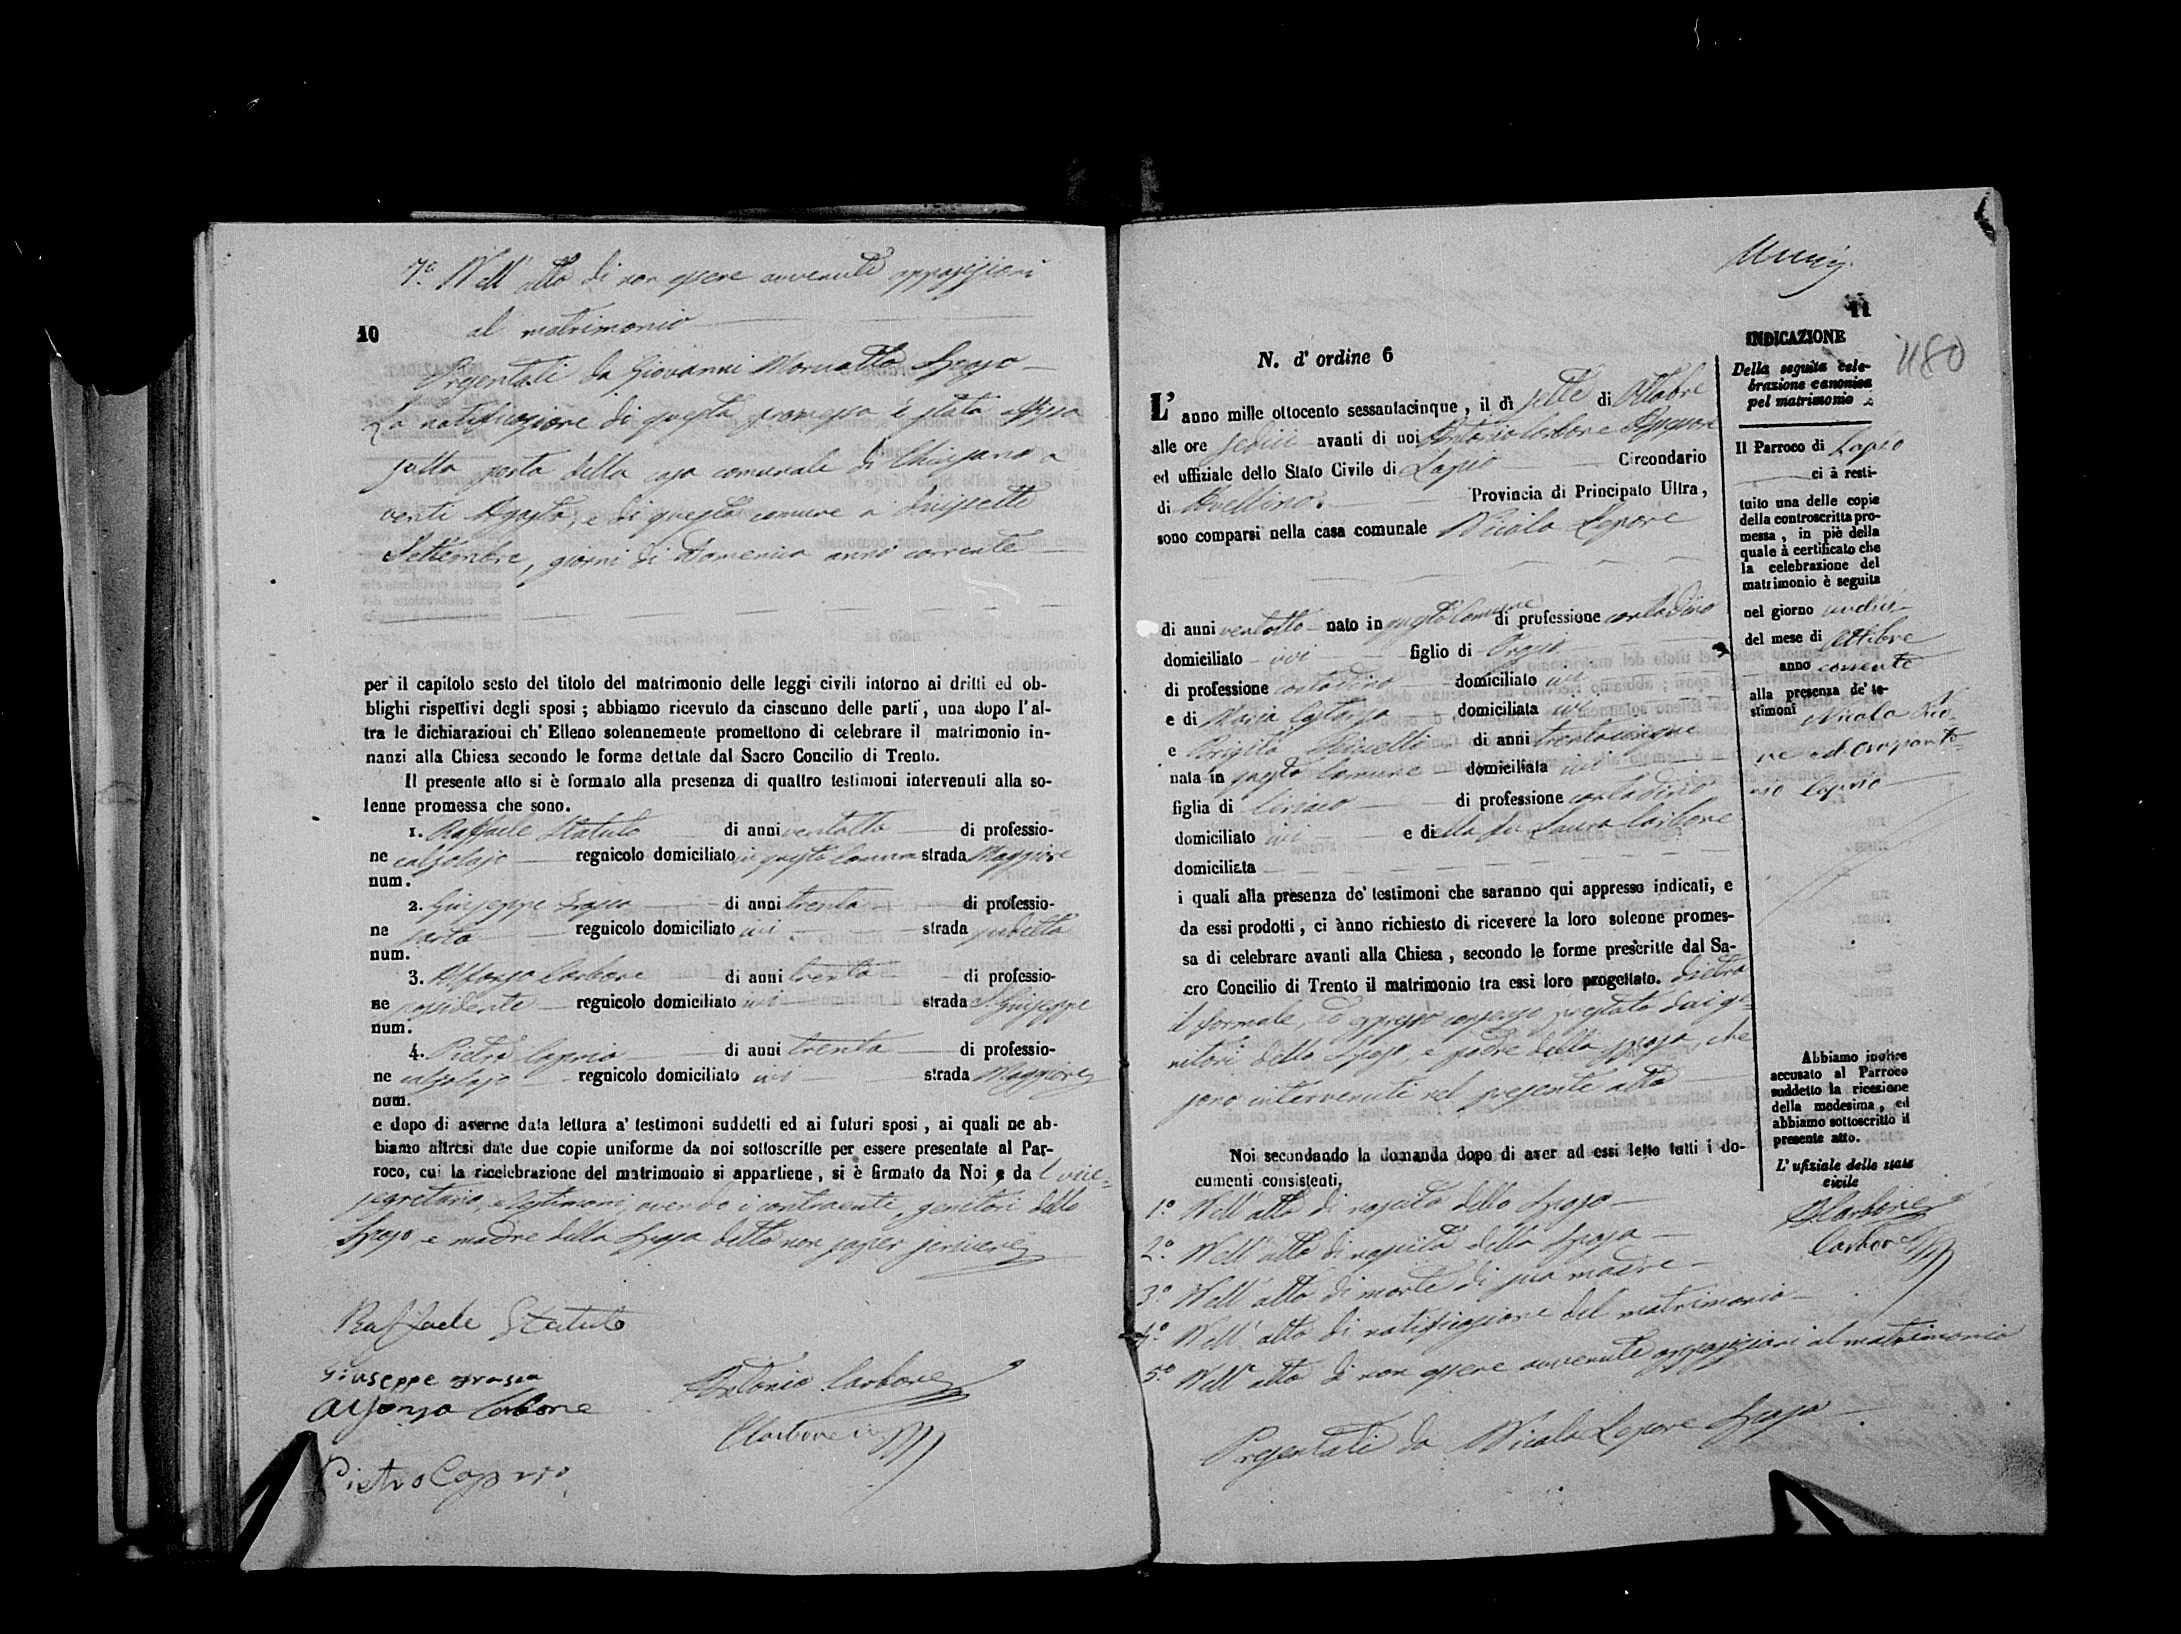 7.º Nell'atto di non essere avvenute opposizioni
10
al matrimonio
Presentati da Giovanni Sposo
La notificazione di questa promessa è stata affissa
sulla porta della casa comunale di Chiusano a
venti Agosto, e di questo comune a diciassette
Settembre, giorni di Domenica anno corrente
per il capitolo sesto del titolo del matrimonio delle leggi civili intorno ai dritti ed ob-
blighi rispettivi degli sposi ; abbiamo ricevuto da ciascuno delle parti, una dopo l'al-
tra le dichiarazioni ch' Elleno solennemente promettono di celebrare il matrimonio in-
nanzi alla Chiesa secondo le forme dettate dal Sacro Concilio di Trento.
Il presente atto si è formato alla presenza di quattro testimoni intervenuti alla so-
lenne promessa che sono.
1. Raffaele Statuto di anni ventotto di professio-
ne calzolajo regnicolo domiciliato in questo Comune strada Maggiore
num.
2. Giuseppe Grassa di anni trenta di professio-
ne sarto regnicolo domiciliato ivi strada sudetta
num.
3. Alfonso Carbone di anni trenta di professio-
ne possidente regnicolo domiciliato ivi strada S. Giuseppe
num.
4. Pietro Caprio di anni trenta di professio-
ne calzolajo regnicolo domiciliato ivi strada Maggiore
num.
e dopo di averne data lettura a' testimoni suddetti ed ai futuri sposi, ai quali ne ab-
biamo altresì date due copie uniforme da noi sottoscritte per essere presentate al Par-
roco, cui la ricelebrazione del matrimonio si appartiene, si è firmato da Noi e da l vice-
segretario, e testimoni, avendo i contraenti, genitori dello
Sposo, e madre della Sposa detto non saper scrivere
Raffaele Statuto
Giuseppe Grassa
Alfonso Carbone
Antonio Carbone
Carbone
Pietro Caprio
11
1180
N. d' ordine 6
L' anno mille ottocento sessantacinque, il dì sette di Ottobre
alle ore sedici avanti di noi Antonio Carbone Assessore
ed uffiziale dello Stato Civile di Lapio Circondario
di Avellino. Provincia di Principato Ultra,
sono comparsi nella casa comunale Nicola Lepore
di anni ventotto nato in questo Comune di professione contadino
domiciliato ivi figlio di
di professione contadino domiciliato ivi
e di Maria domiciliata ivi
e Brigita di anni trentacinque
nata in questo Comune domiciliata ivi
figlia di Ciriaco di professione contadino
domiciliato ivi e di ella fu Laura Carbone
domiciliata
i quali alla presenza de' testimoni che saranno qui appresso indicati, e
da essi prodotti, ci ànno richiesto di ricevere la loro solenne promes-
sa di celebrare avanti alla Chiesa, secondo le forme prescritte dal Sa-
cro Concilio di Trento il matrimonio tra essi loro progettato. dietro
il formale, ed espresso consenso prestato dai ge-
nitori dello Sposo, e padre della sposa, che
sono intervenuti nel presente atto
Noi secondando la domanda dopo di aver ad essi letto tutti i do-
cumenti consistenti.
1.º Nell'atto di nascita dello Sposo
2.º Nell'atto di nascita della Sposa
3.º Nell'atto di morte di sua madre
4.º Nell'atto di notificazione del matrimonio
5.º Nell'atto di non essere avvenute opposizioni al matrimonio
Presentati da Nicola Lepore Sposo
INDICAZIONE
Della seguita cele-
brazione canonica
pel matrimonio
Il Parroco di Lapio
ci à resti-
tuito una delle copie
della controscritta pro-
messa, in piè della
quale à certificato che
la celebrazione del
matrimonio è seguita
nel giorno undici
del mese di Ottobre
anno corrente
alla presenza de' te-
stimoni Nicola
Abbiamo inoltre
accusato al Parroco
suddetto la ricezione
della medesima, ed
abbiamo sottoscritto il
presente atto.
L' ufiziale dello stato
civile
A. Carbone
Carbone